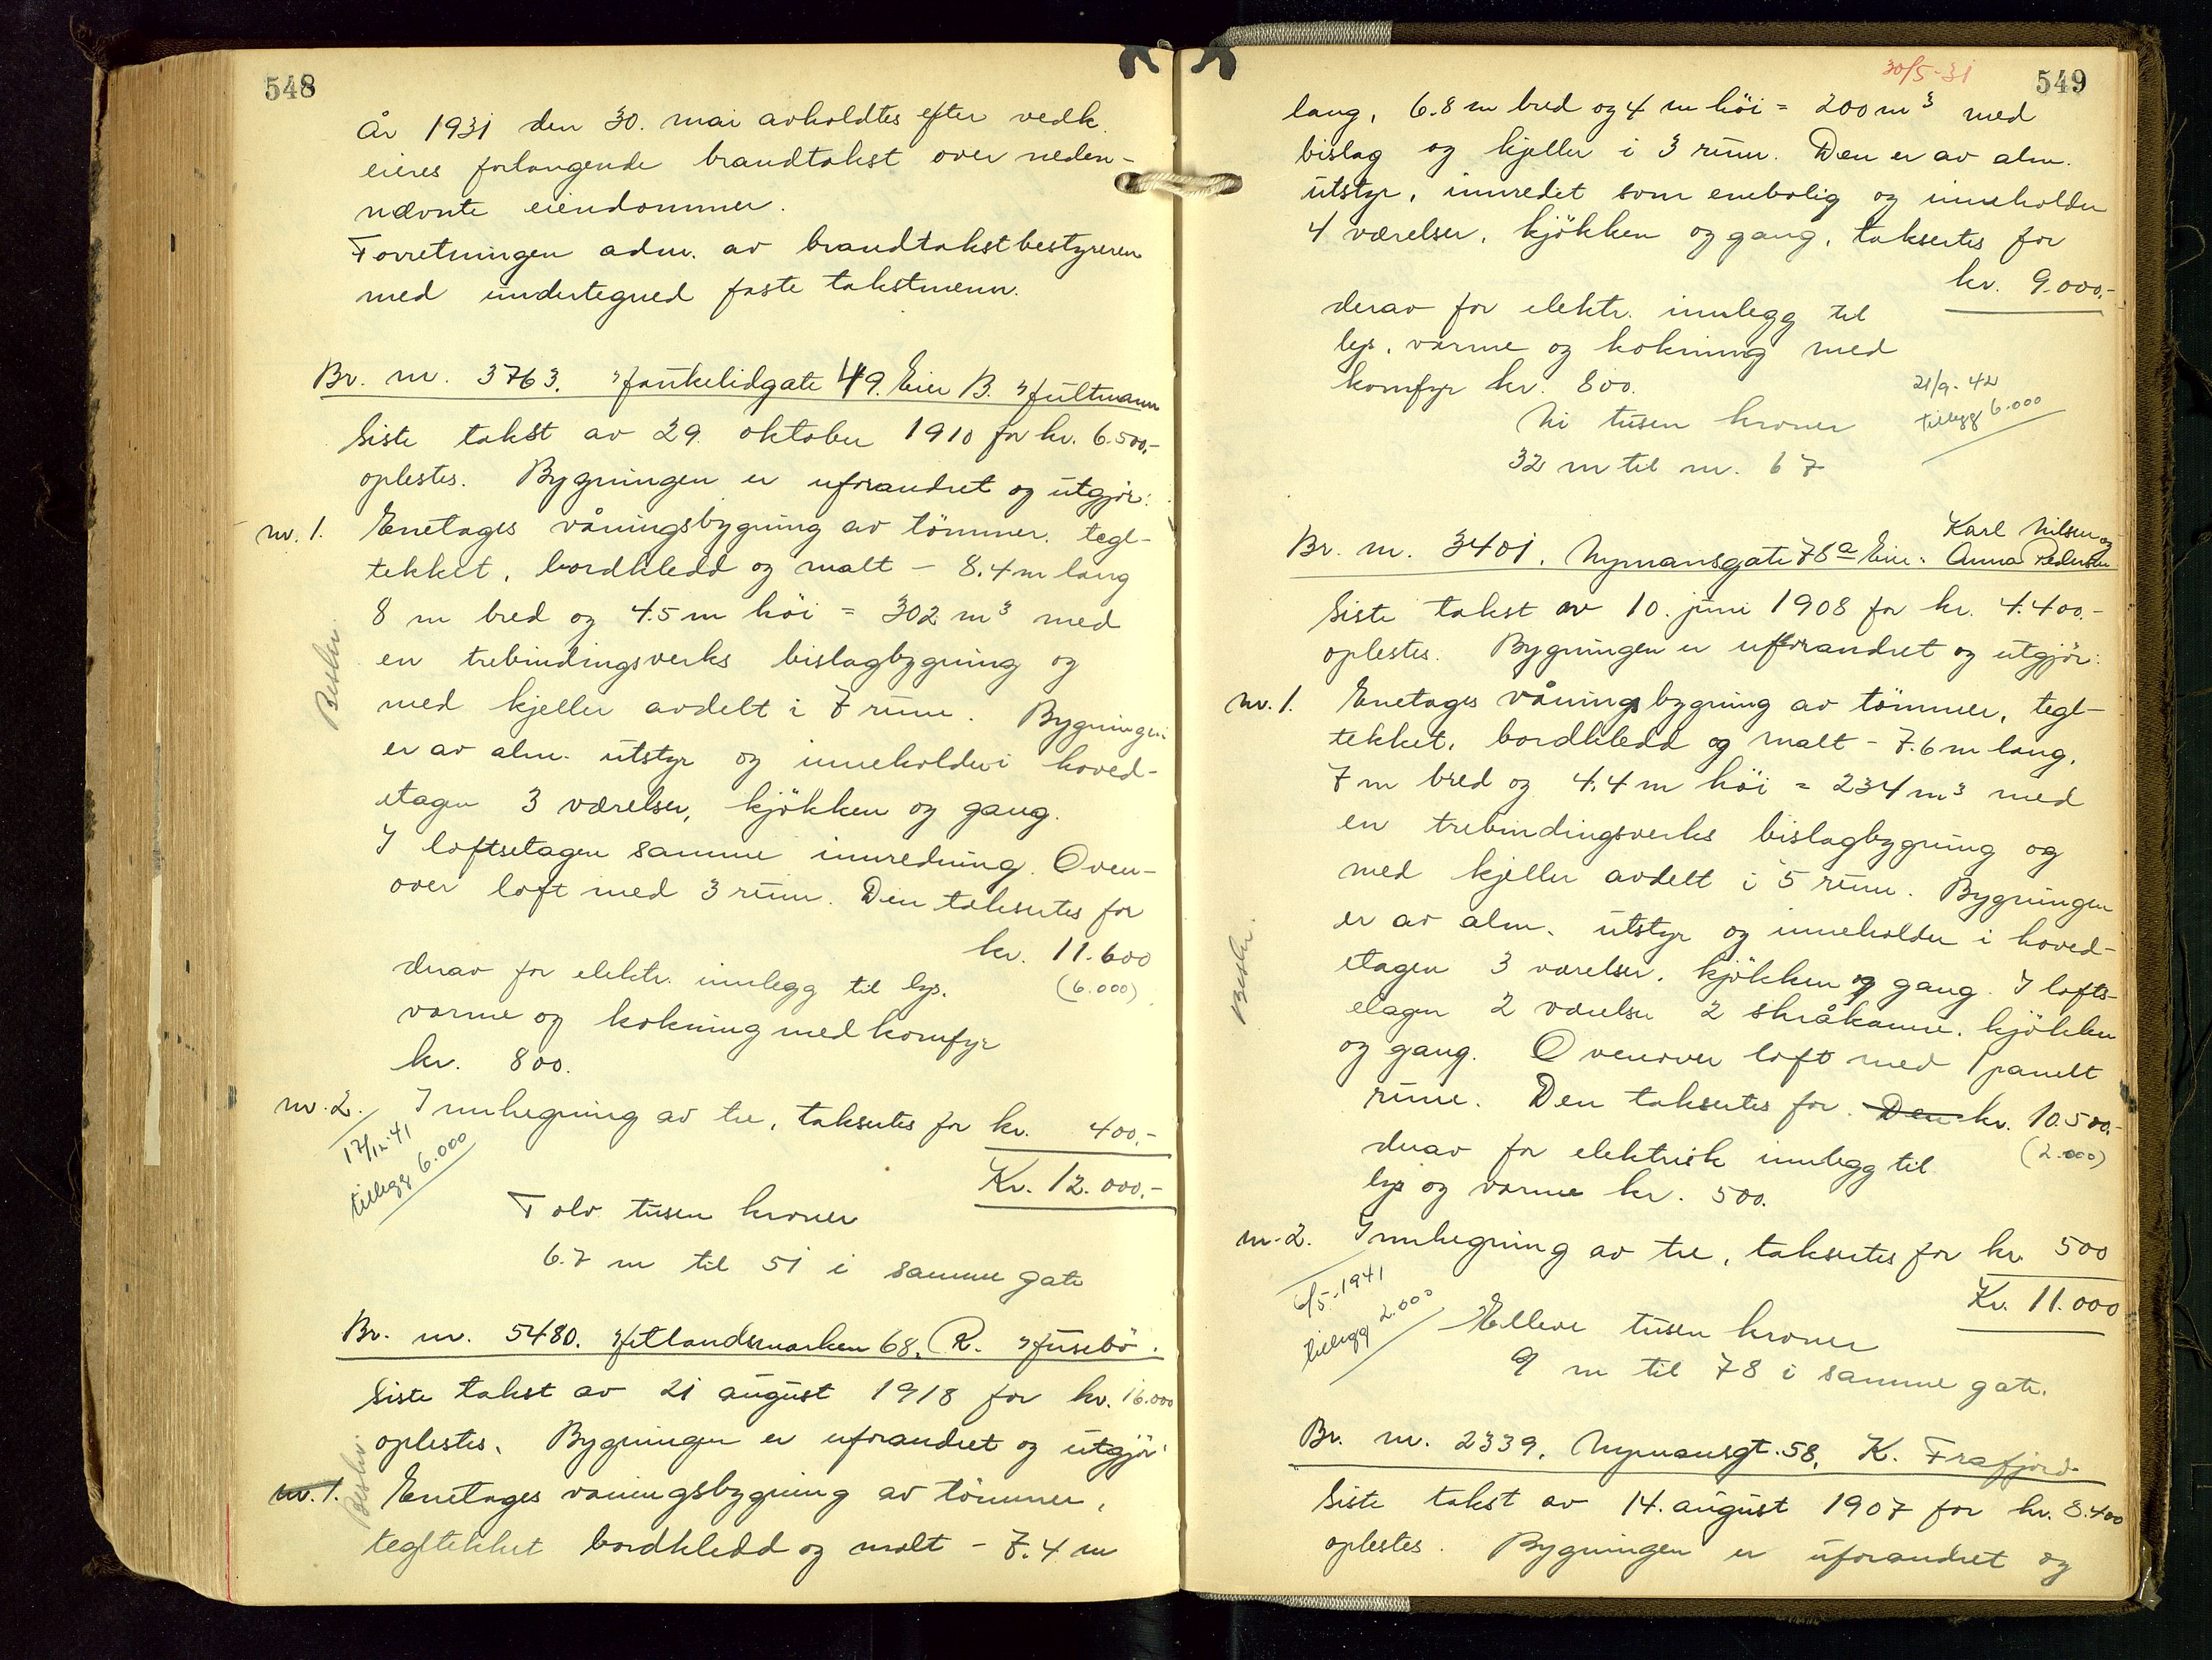 548
År 1931 den 30. mai avholdtes efter vedk.
eieres forlangende brandtakst over neden-
nævnte eiendommer.
Forretningen adm. av brandtakstbestyreren
med undertegned faste takstmenn.
Br. nr. 3763. Haukelidgate 49. Eier B. Hultmann
Siste takst av 29. oktober 1910 for kr. 6.500,-
oplestes. Bygningen er uforandret og utgjør:
nr. 1. Enetages våningsbygning av tømmer, tegl-
tekket, bordkledd og malt - 8.4 m lang
8 m bred og 4.5 m høi = 302 m³ med
en trebindingsverks bislagbygning og
med kjeller avdelt i 7 rum. Bygningen
er av alm. utstyr og inneholder i hoved-
etagen 3 værelser, kjøkken og gang.
I loftsetagen samme innredning. Oven-
over loft med 3 rum. Den taksertes for
kr. 11.600
derav for elektr. innlegg til lys,
(6.000)
varme og kokning med komfyr
kr. 800.
nr. 2. Innhegning av tre, taksertes for kr. 400.-
17/12-41
tillegg 6.000
Kr. 12.000,-
Tolv tusen kroner
6.7 m til 51 i samme gate
Br. nr. 5480. Hetlandsmarken 68. R. Husebø.
Siste takst av 21 august 1918 for kr. 16.000
oplestes. Bygningen er uforandret og utgjør:
nr. 1. Enetages våningsbygning av tømmer,
tegltekket bordkledd og malt - 7.4 m
30/5-31
549
lang, 6.8 m bred og 4 m høi = 200 m³ med
bislag og kjeller i 3 rum. Den er av alm.
utstyr, innredet som enebolig og inneholder
4 værelser, kjøkken og gang, taksertes for
kr. 9.000,-
derav for elektr. innlegg til
lys, varme og kokning med
komfyr kr. 800.
21/9-42
tillegg 6.000
Ni tusen kroner
32 m til nr. 67
Karl Nilsen og
Br. nr. 3401. Nymansgate 76a Eier: Anna Pedersen
Siste takst av 10. juni 1908 for kr. 4.400.-
oplestes. Bygningen er uforandret og utgjør:
nr. 1. Enetages våningsbygning av tømmer, tegl-
tekket, bordkledd og malt - 7.6 m lang,
7 m bred og 4.4 m høi = 234 m³ med
en trebindingsverks bislagbygning og
med kjeller avdelt i 5 rum. Bygningen
er av alm. utstyr og inneholder i hoved-
etagen 3 værelser, kjøkken og gang. I lofts-
etagen 2 værelser 2 skråkamre, kjøkken
og gang. Ovenover loft med 1 panelt
rum. Den taksertes for Den kr. 10.500,-
derav for elektrisk innlegg til
(2.000)
lys og varme kr. 500.
nr. 2. Innhegning av tre, taksertes for kr. 500
6/5-1941
tillegg 2.000
Kr. 11.000
Elleve tusen kroner
9 m til 78 i samme gate.
Br. nr. 2339. Nymansgt. 58. K. Frafjord
Siste takst av 14. august 1907 for kr. 8.400
oplestes. Bygningen er uforandret og